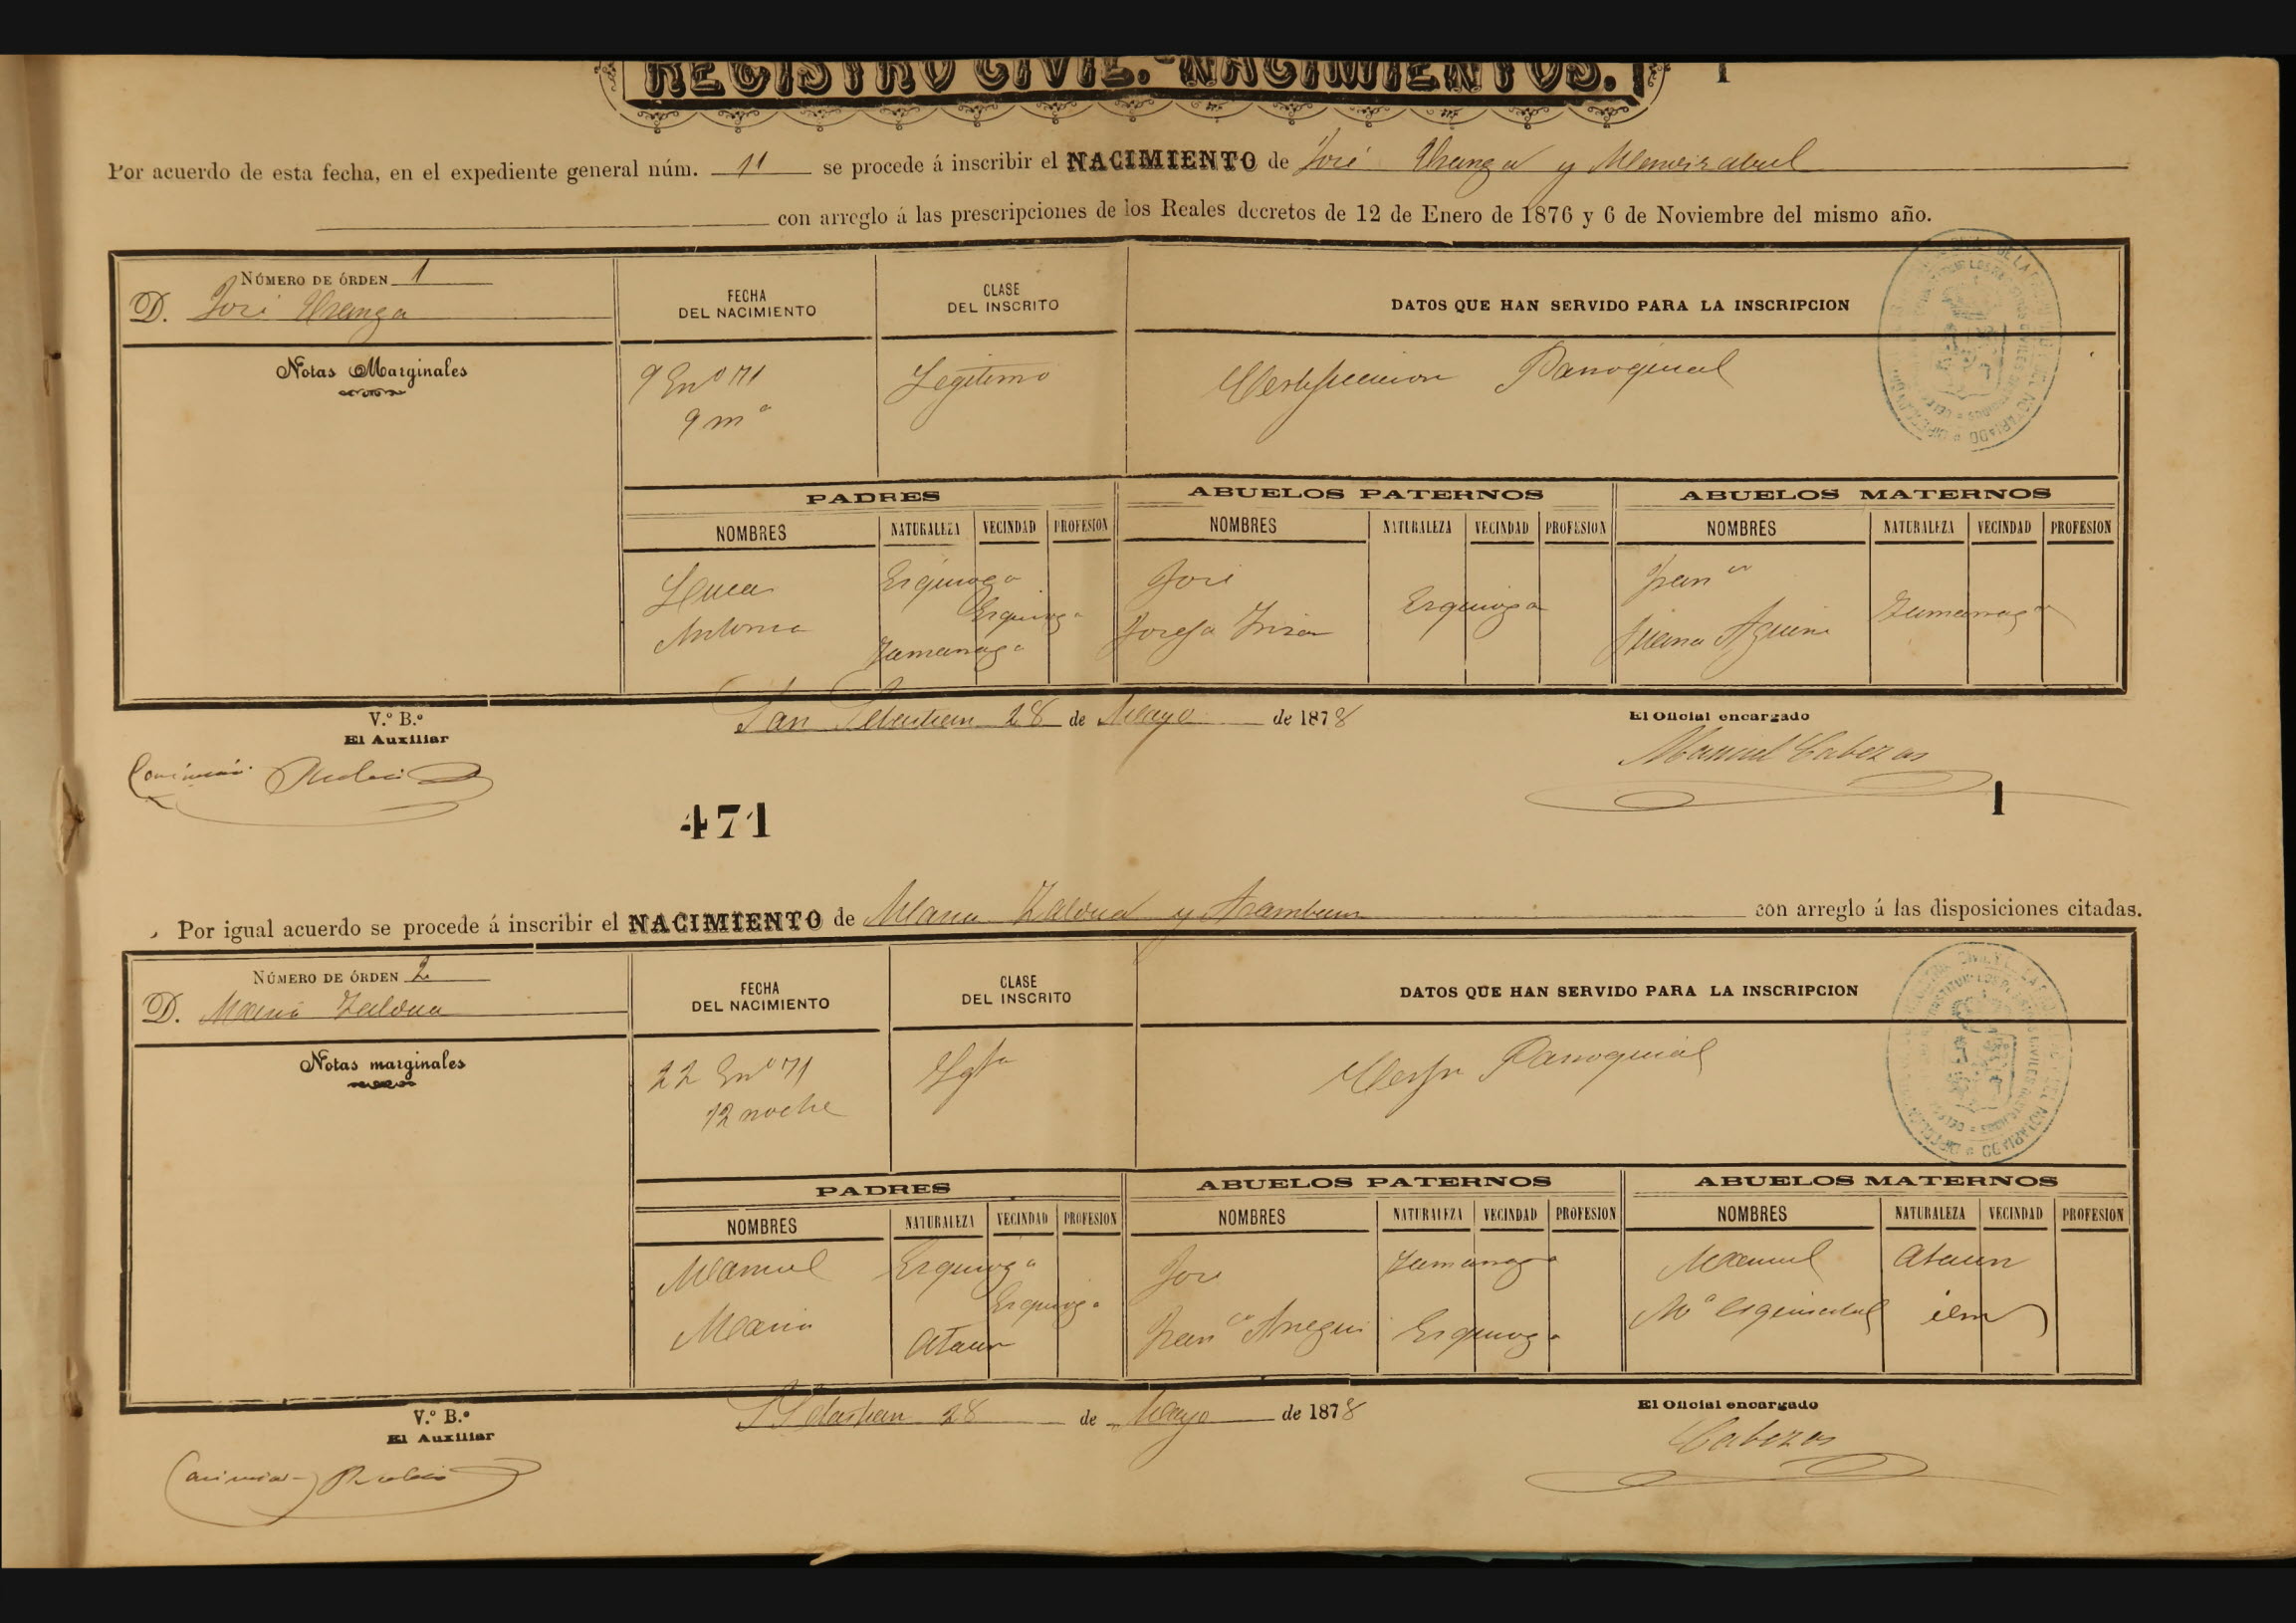 REGISTRO CIVIL.-NACIMIENTOS. 1
Por acuerdo de esta fecha, en el expediente general núm. 11 se procede á inscribir el NACIMIENTO de José Uranga y
con arreglo á las prescripciones de los Reales decretos de 12 de Enero de 1876 y 6 de Noviembre del mismo año.
NÚMERO DE ÓRDEN 1
D. José Uranga
FECHA DEL NACIMIENTO
CLASE DEL INSCRITO
DATOS QUE HAN SERVIDO PARA LA INSCRIPCION
Notas Marginales
9 En⁰ 71
9 mª
Legítimo
Certificacion Parroquial
PADRES
ABUELOS PATERNOS
ABUELOS MATERNOS
NOMBRES NATURALEZA VECINDAD PROFESION NOMBRES NATURALEZA VECINDAD PROFESION NOMBRES NATURALEZA VECINDAD PROFESION
Lucas Ezquioga José Franco
Ezquioga Ezquioga Zumarraga
Antonia Zumarraga Josefa Juana
San Sebastian 28 de Mayo de 1878
V.º B.º
El Auxiliar
El Oficial encargado
Manuel Cabezas
1
471
Por igual acuerdo se procede á inscribir el NACIMIENTO de Maria Zaldua y con arreglo á las disposiciones citadas.
NÚMERO DE ÓRDEN 2
D. Maria Zaldua
FECHA DEL NACIMIENTO
CLASE DEL INSCRITO
DATOS QUE HAN SERVIDO PARA LA INSCRIPCION
Notas marginales
22 En⁰ 71
12 noche
Parroquial
PADRES
ABUELOS PATERNOS
ABUELOS MATERNOS
NOMBRES NATURALEZA VECINDAD PROFESION NOMBRES NATURALEZA VECINDAD PROFESION NOMBRES NATURALEZA VECINDAD PROFESION
Manuel Ezquioga José Zumarraga Manuel Ataun
Ezquioga
Maria Ataun Franca Ezquioga Mª
S Sebastian 28 de Mayo de 1878
V.º B.º
El Auxiliar
El Oficial encargado
Cabezas